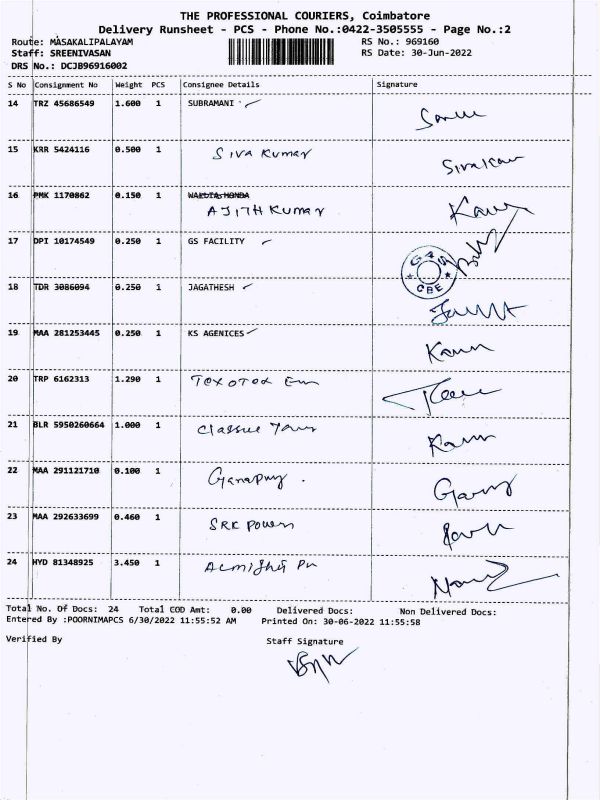 THE PROFESSIONAL COURIERS, Coimbatore
Delivery Runsheet - PCS - Phone No.:0422-3505555 - Page No.:2
Route: MASAKALIPALAYAM RS No.: 969160
Staff: SREENIVASAN RS Date: 30-Jun-2022
DRS No.: DCJB96916002
S No Consignment No Weight PCS Consignee Details Signature
14 TRZ 45686549 1.600 1 SUBRAMANI
15 KRR 5424116 0.500 1 Siva Kumar
16 PMK 1170862 0.150 1
AJITH Kumar
17 DPI 10174549 0.250 1 GS FACILITY
G4S
CBE
18 TDR 3086094 0.250 1 JAGATHESH
19 MAA 281253445 0.250 1 KS AGENICES
20 TRP 6162313 1.290 1
21 BLR 5950260664 1.000 1
22 MAA 291121710 0.100 1
23 MAA 292633699 0.460 1 SRK Powen
24 HYD 81348925 3.450 1
Total No. Of Docs: 24 Total COD Amt: 0.00 Delivered Docs: Non Delivered Docs:
Entered By :POORNIMAPCS 6/30/2022 11:55:52 AM Printed On: 30-06-2022 11:55:58
Verified By Staff Signature